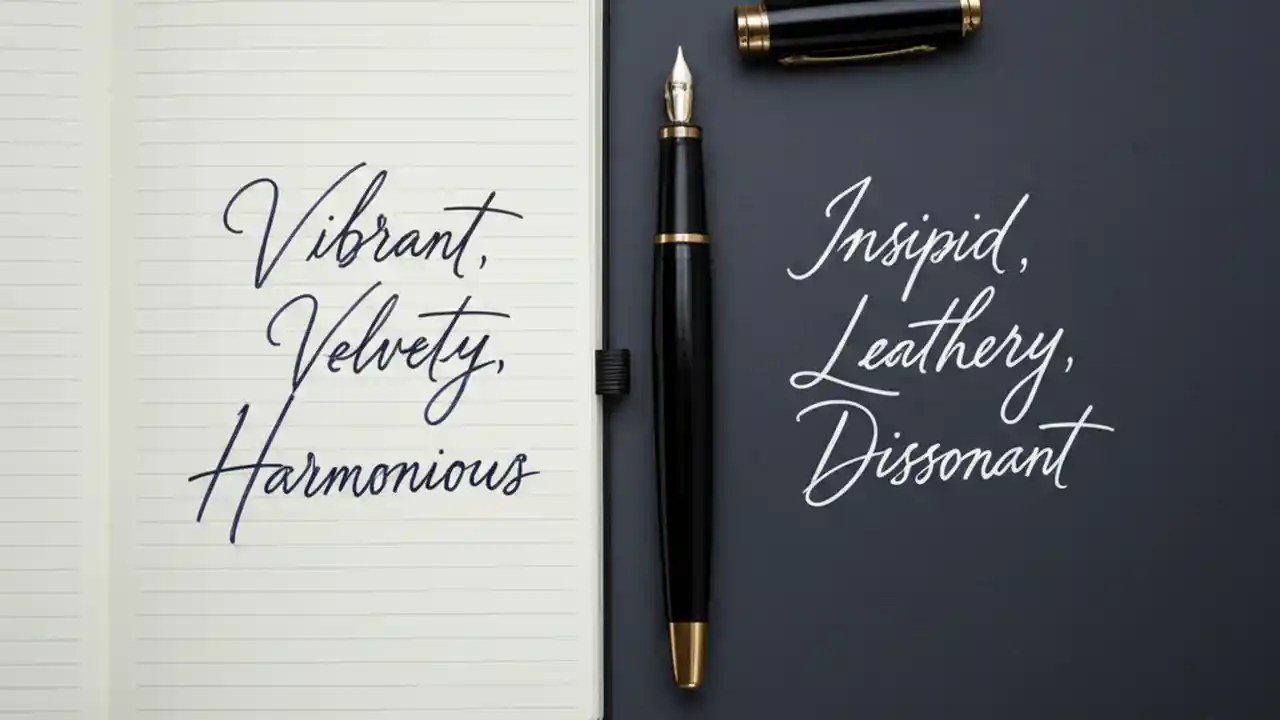 Vibrant,
Velvety,
Harmonious
Insipid,
Leathery,
Dissonant